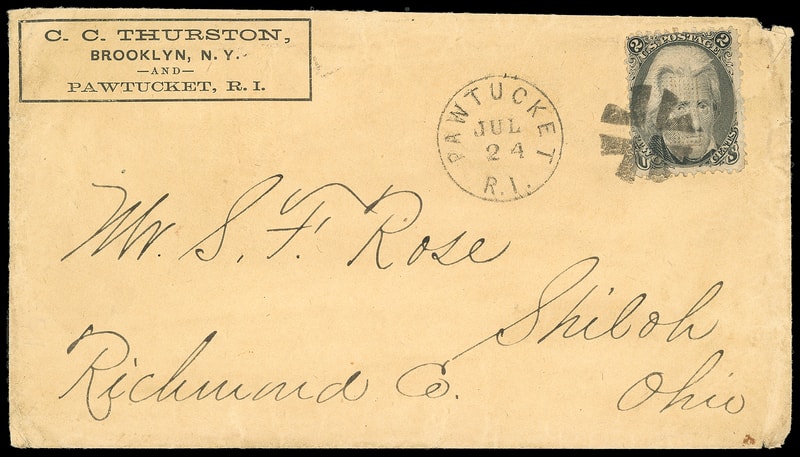 C. C. THURSTON,
BROOKLYN, N. Y.
—AND—
PAWTUCKET, R. I.
PAWTUCKET
JUL
24
R.I.
2 U.S. POSTAGE 2
CENTS
Mr. S. F. Rose
Shiloh
Richmond Co.
Ohio